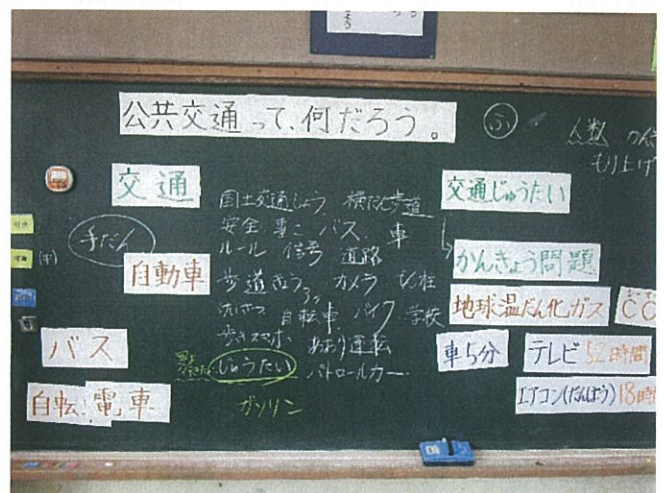 公共交通って、何だろう。
ふ
人数
もり上げ
交通
手だん
自動車
バス
自転
電車
国土交通しょう 横だん歩道
安全 事こ バス 車
ルール 信号 道路
歩道きょう カメラ 電柱
けいさつ 自転車 バイク 学校
歩きスマホ あおり運転
じゅうたい パトロールカー
ガソリン
交通じゅうたい
かんきょう問題
地球温だん化ガス
車5分
テレビ 52時間
エアコン(だんぼう) 18時